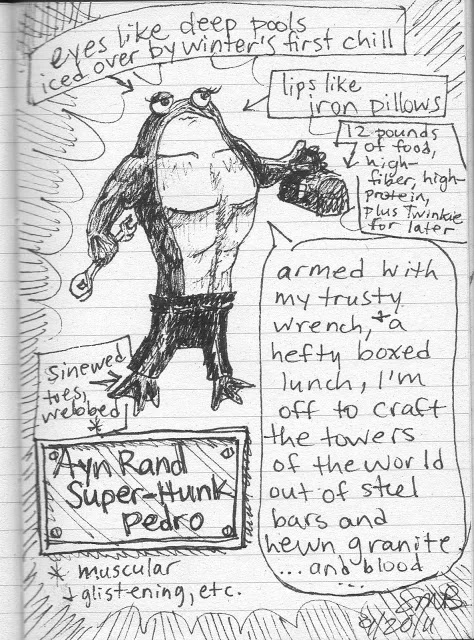 eyes like deep pools
iced over by winter's first chill
lips like
iron pillows
12 pounds
of food,
high-
fiber, high-
protein,
plus Twinkie
for later
armed with
my trusty
wrench, + a
hefty boxed
lunch, I'm
off to craft
the towers
of the world
out of steel
bars and
hewn granite
...and blood
...
sinewed
toes,
webbed
*
Ayn Rand
Super-Hunk
Pedro
* muscular
+ glistening, etc.
SMB
8/2011